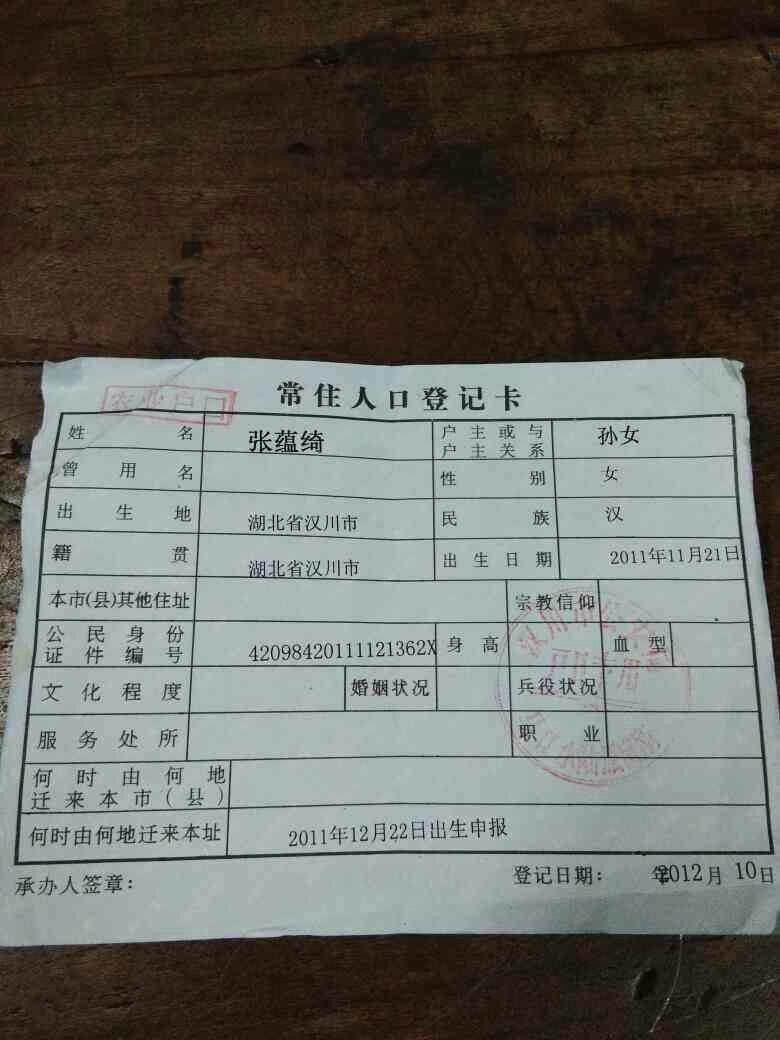 常住人口登记卡
农业户口
姓名 张蕴绮 户主或与户主关系 孙女
曾用名 性别 女
出生地 湖北省汉川市 民族 汉
籍贯 湖北省汉川市 出生日期 2011年11月21日
本市(县)其他住址 宗教信仰
公民身份证件编号 42098420111121362X 身高 血型
文化程度 婚姻状况 兵役状况
服务处所 职业
何时由何地迁来本市(县)
何时由何地迁来本址 2011年12月22日出生申报
承办人签章: 登记日期: 年2012月 10日
汉川市公安局
户口专用